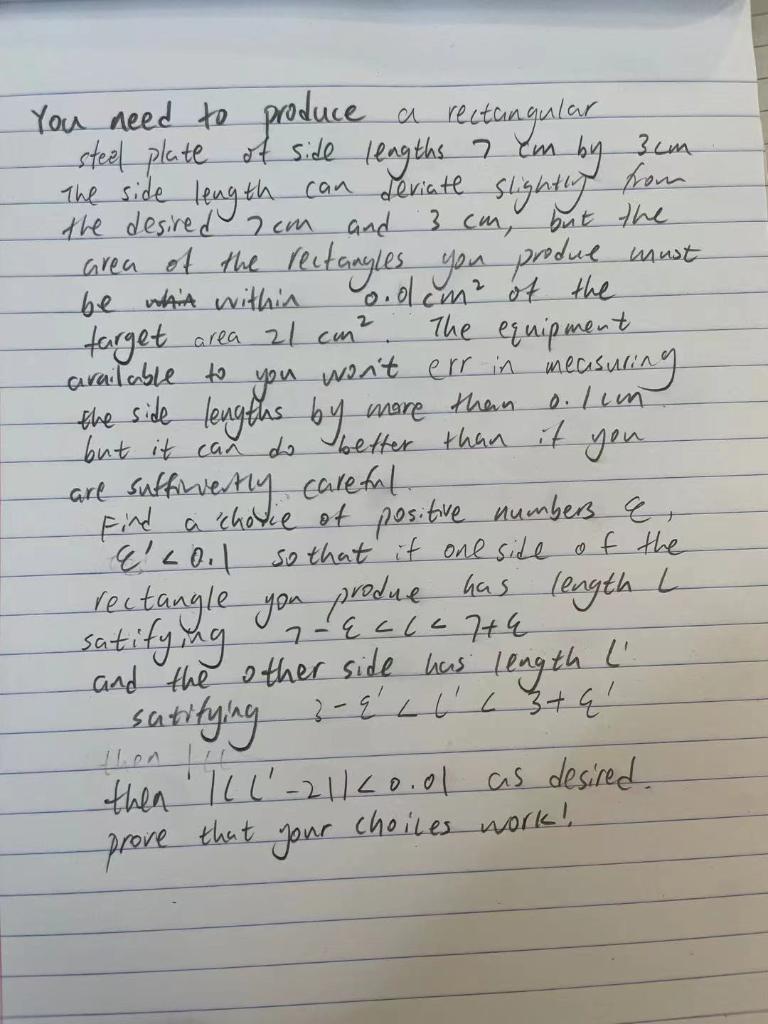 You need to produce a rectangular
steel plate of side lengths 7 cm by 3cm
The side length can deviate slightly from
the desired 7cm and 3 cm, but the
area of the rectangles you produe must
be within 0.01cm² of the
target area 21 cm². The equipment
available to you won't err in measuring
the side lengths by more than 0.1cm
but it can do better than if you
are suffivertly careful.
Find a choice of positive numbers ε,
ε' < 0.1 so that if one side of the
rectangle you produe has length L
satifying 7-ε < L < 7+ε
and the other side has length L'
satifying 3-ε' < L' < 3+ε'
then |LL'
then |LL'-21| < 0.01 as desired.
prove that your choices work!